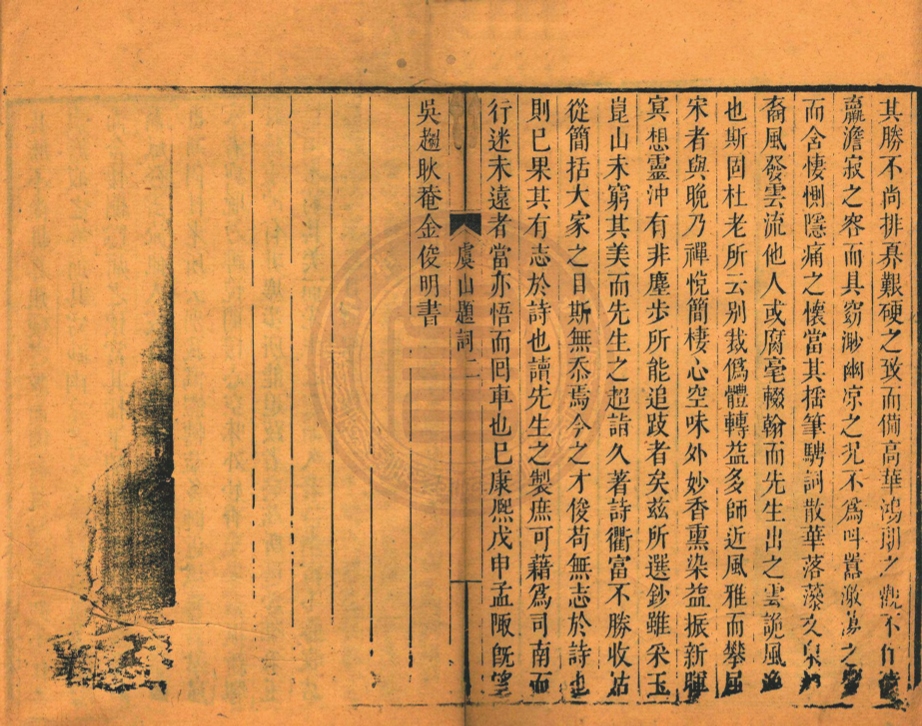 其勝不尚排奡艱硬之致而備高華鴻朗之觀不作
羸澹寂之容而具窈渺幽凉之况不爲叫囂激蕩之
而含悽惻隱痛之懷當其搖筆騁詞散華落藻久
裔風發雲流他人或腐毫輟翰而先生出之雲詭風
也斯固杜老所云别裁僞體轉益多師近風雅而攀屈
宋者與晚乃禪悅簡棲心空味外妙香熏染益振新暉
㝠想靈沖有非塵步所能追跂者矣兹所選鈔雖采玉
崑山未窮其美而先生之超詣久著詩衢富不勝收姑
從簡括大家之目斯無忝焉今之才俊苟無志於詩也
則已果其有志於詩也讀先生之製庶可藉爲司南而
行迷未遠者當亦悟而回車也已康熈戊申孟陬旣望
吳趨耿菴金俊明書
虞山題詞 二